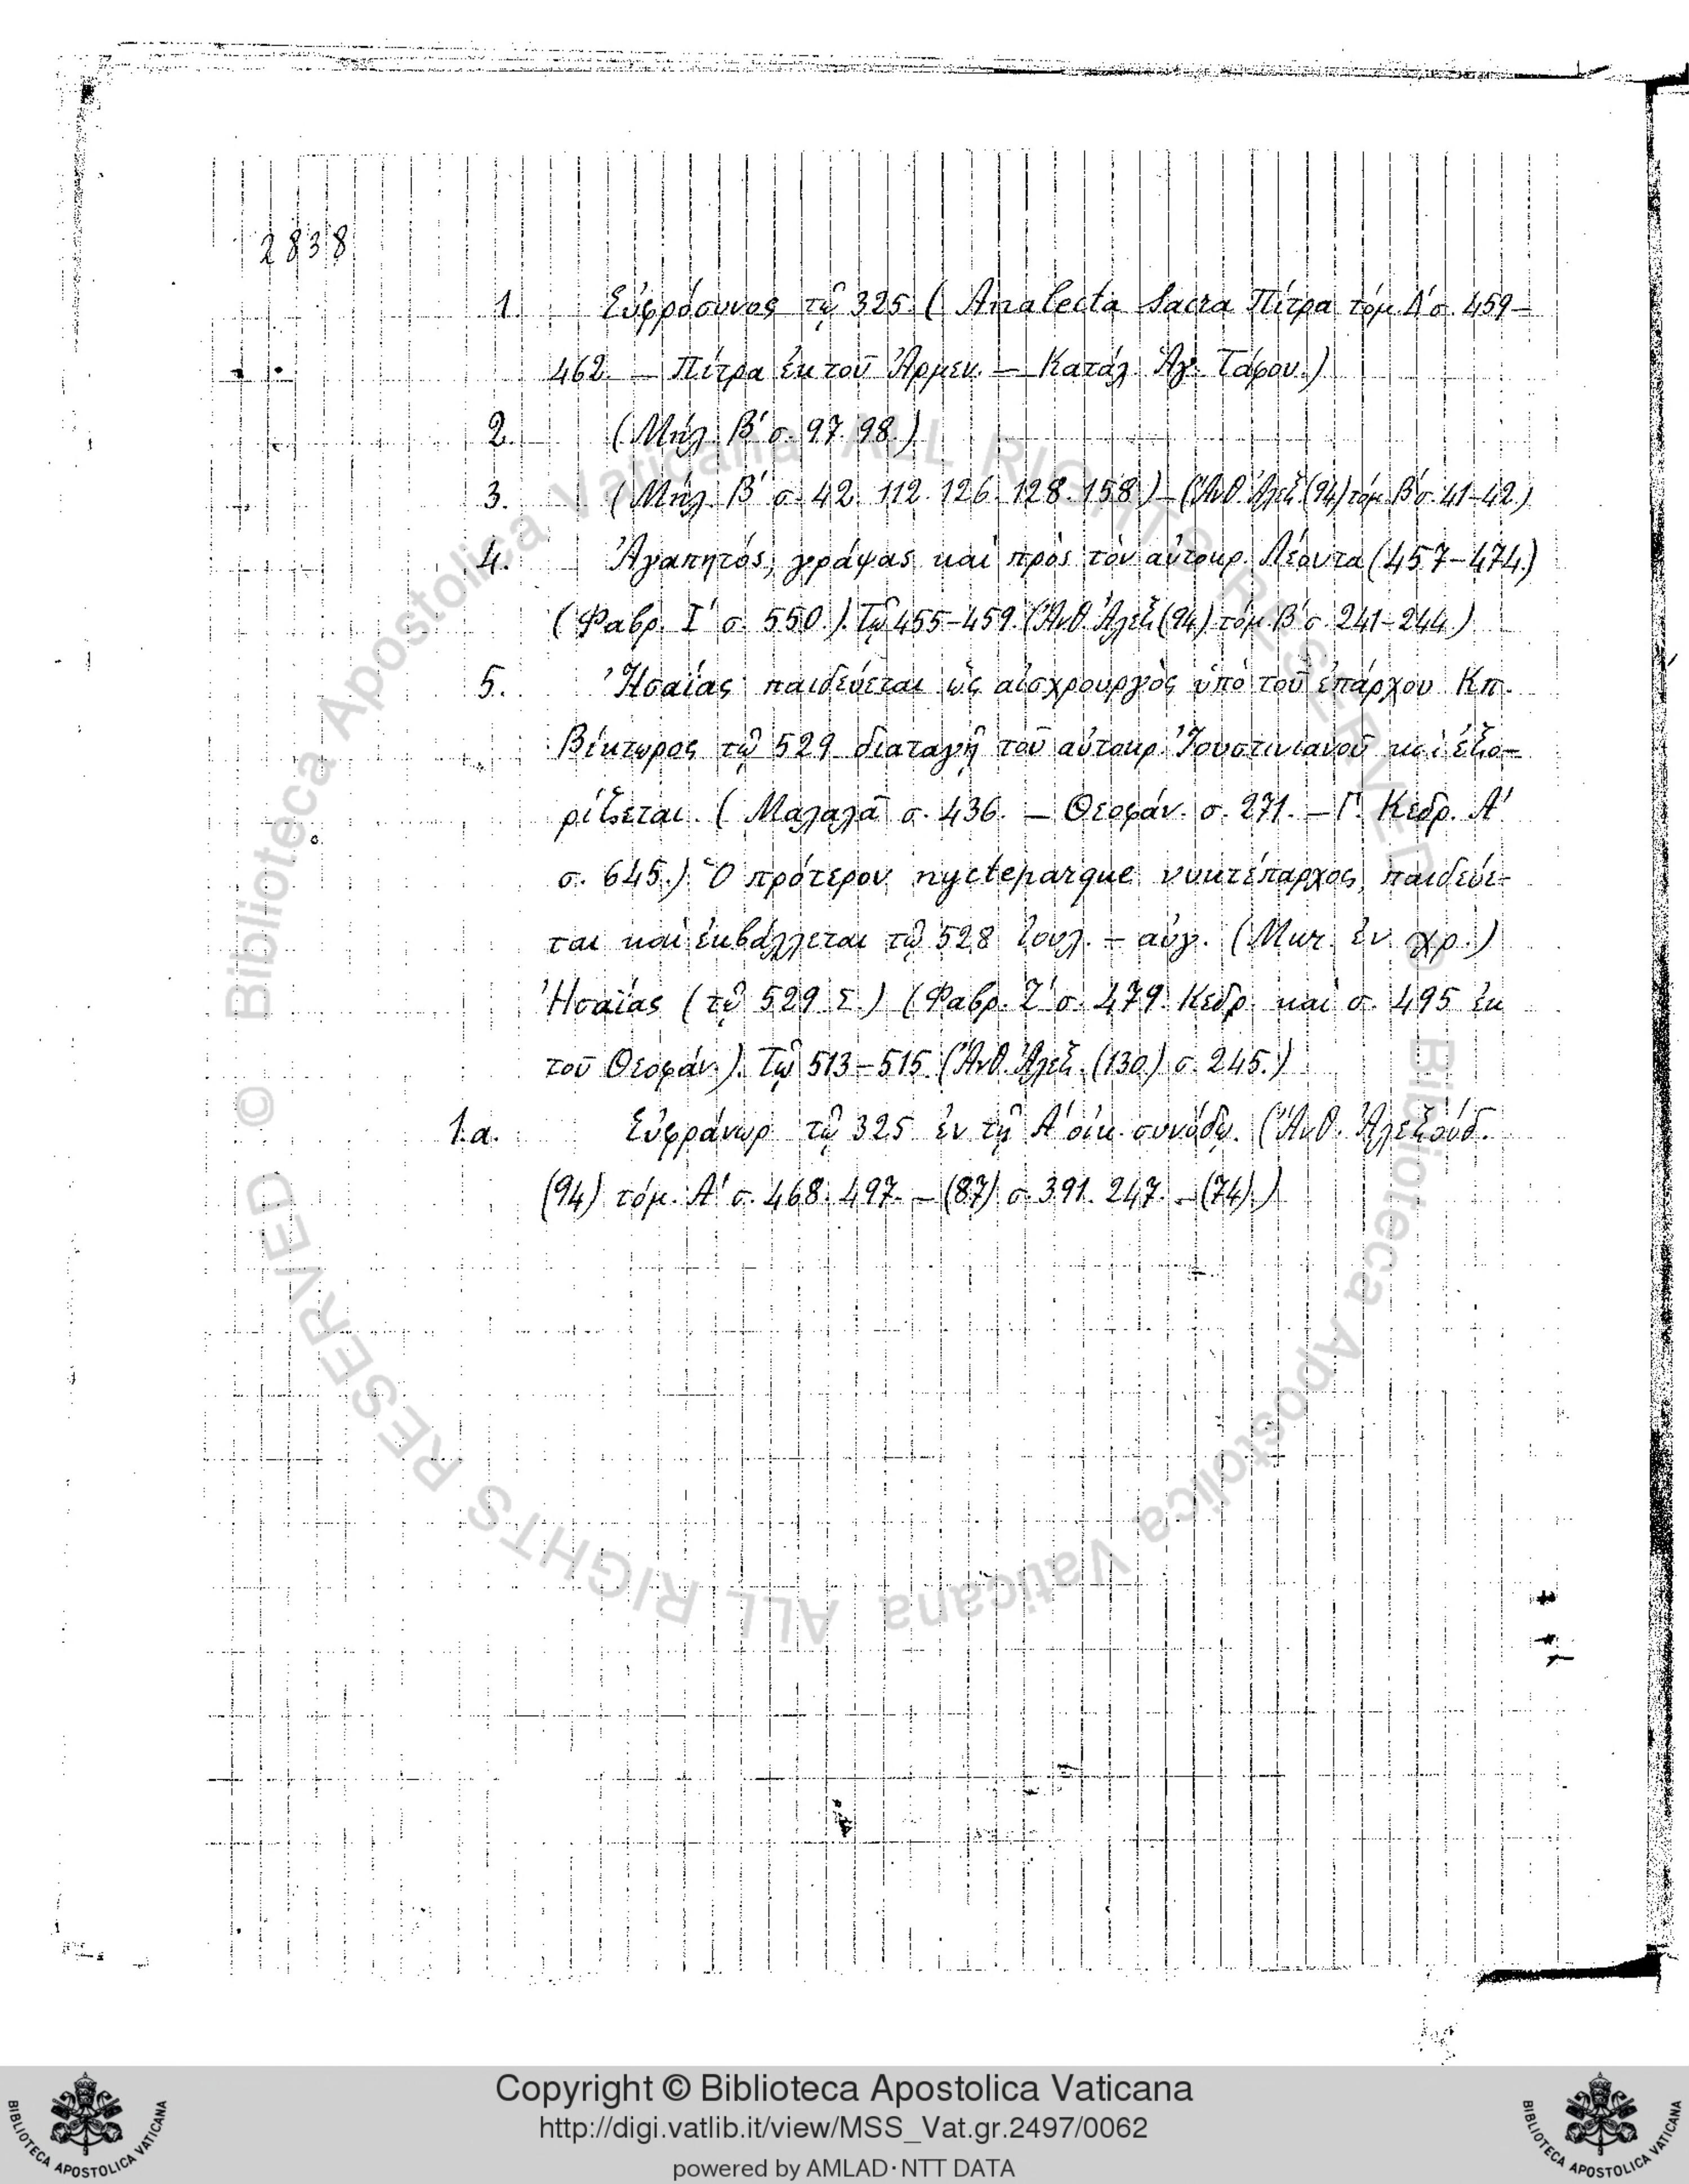 2838
1. Εὐφρόσυνος τῷ 325. (Analecta Sacra Πίτρα τόμ. Δ΄ σ. 459–
462. — Πίτρα ἐκ τοῦ Ἀρμεν. — Κατάλ. Ἁγ. Τάφου.)
2. (Μήλ. Β΄ σ. 97. 98.)
3. (Μήλ. Β΄ σ. 42. 112. 126. 128. 158.) – (Ἄνθ. Ἀλεξ. (94) τόμ. Β΄ σ. 41–42.)
4. Ἀγαπητός, γράψας καὶ πρὸς τὸν αὐτοκρ. Λέοντα (457–474.)
(Φαβρ. Ι΄ σ. 550.). Τῷ 455–459. (Ἄνθ. Ἀλεξ. (94) τόμ. Β΄ σ. 241–244.)
5. Ἡσαΐας παιδεύεται ὡς αἰσχρουργὸς ὑπὸ τοῦ ἐπάρχου Κπ.
Βίκτωρος τῷ 529 διαταγῇ τοῦ αὐτοκρ. Ἰουστινιανοῦ καὶ ἐξο–
ρίζεται. (Μαλαλᾶ σ. 436. — Θεοφάν. σ. 271. — Γ. Κεδρ. Α΄
σ. 645.) Ὁ πρότερον nycteparque νυκτέπαρχος, παιδεύε–
ται καὶ ἐκβάλλεται τῷ 528 ἰουλ. – αὐγ. (Μικ. ἐν χρ.)
Ἡσαΐας (τῷ 529 Σ.) (Φαβρ. Ζ΄ σ. 479. Κεδρ. καὶ σ. 495 ἐκ
τοῦ Θεοφάν.). Τῷ 513–515. (Ἄνθ. Ἀλεξ. (130) σ. 245.)
1.α. Εὐφράνωρ τῷ 325 ἐν τῇ Α΄ οἰκ. συνόδῳ. (Ἄνθ. Ἀλεξούδ.
(94) τόμ. Α΄ σ. 468. 497. – (87) σ. 391. 247. – (74).)
© Biblioteca Apostolica Vaticana ALL RIGHTS RESERVED
© Biblioteca Apostolica Vaticana ALL RIGHTS RESERVED
Copyright © Biblioteca Apostolica Vaticana
http://digi.vatlib.it/view/MSS_Vat.gr.2497/0062
powered by AMLAD·NTT DATA
BIBLIOTECA APOSTOLICA VATICANA
BIBLIOTECA APOSTOLICA VATICANA